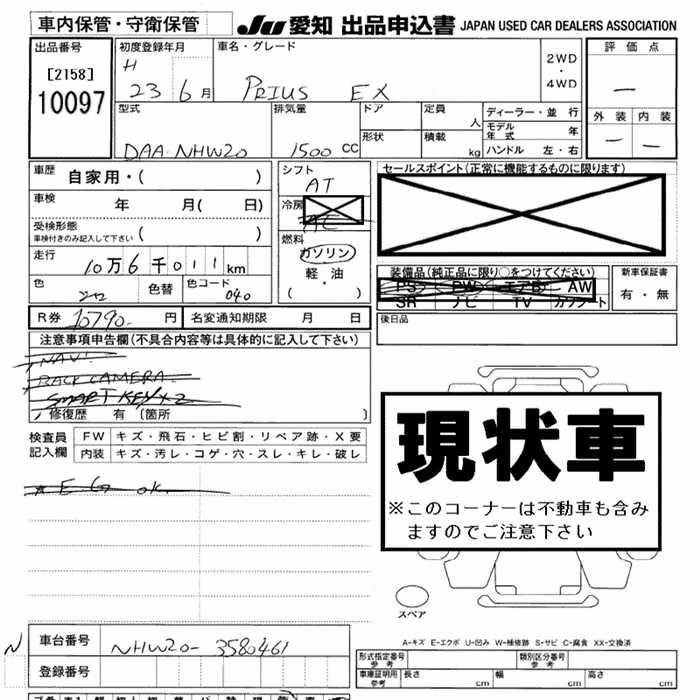 車内保管・守衛保管 JU 愛知 出品申込書 JAPAN USED CAR DEALERS ASSOCIATION
出品番号 初度登録年月 車名・グレード 2WD・4WD 評価点
[2158] H
10097 23 6月 PRIUS EX —
外装 内装
— —
型式 排気量 ドア 定員 人 ディーラー・並行
モデル年式 年
形状 積載 kg ハンドル 左・右
DAA-NHW20 1500 CC
車歴 自家用・( )
シフト AT
セールスポイント(正常に機能するものに限ります)
車検 年 月( 日)
冷房 AC
受検形態 車検付きのみ記入して下さい ( )
燃料 ガソリン
軽・油
( )
走行 10万6千011km
装備品(純正品に限り○をつけてください) 新車保証書
PS PW エアB AW 有・無
SR ナビ TV カワシート
色 シロ 色替 色コード 040
後日品
R券 10790- 円 名変通知期限 月 日
注意事項申告欄(不具合内容等は具体的に記入して下さい)
NAVI
BACK CAMERA
SMART KEY×2
修復歴 有 (箇所 )
検査員記入欄 FW キズ・飛石・ヒビ割・リペア跡・X要
内装 キズ・汚レ・コゲ・穴・スレ・キレ・破レ
* E/G ok
現状車
※このコーナーは不動車も含み
ますのでご注意下さい
スペア
A-キズ E-エクボ U-凹み W-補修跡 S-サビ C-腐食 XX-交換済
N 車台番号 NHW20-3580461
登録番号
形式指定番号 参考 類別区分番号 参考
車庫証明用 参考 長さ cm 幅 cm 高さ cm